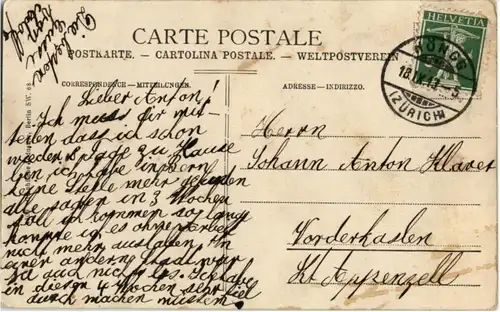 CARTE POSTALE
POSTKARTE. – CARTOLINA POSTALE. – WELTPOSTVEREIN
CORRESPONDENCE – MITTEILUNGEN.
ADRESSE – INDIRIZZO.
HELVETIA
(ZÜRICH)
Lieber Anton!
Ich muss dir mit-
teilen dass ich schon
wieder zu Hause
bin ich habe in Bern
keine Stelle mehr gefunden
alle sagen in 3 Wochen
soll ich kommen so lang
konnte ich es ohne Arbeit
nicht mehr aushalten In
einer andern Stadt war
ja auch nichts los. Ich habe
in diesen 4 Wochen sehr viel
durch machen müssen
Herrn
Johann Anton Klarer
Vorderhaslen
Kt Appenzell